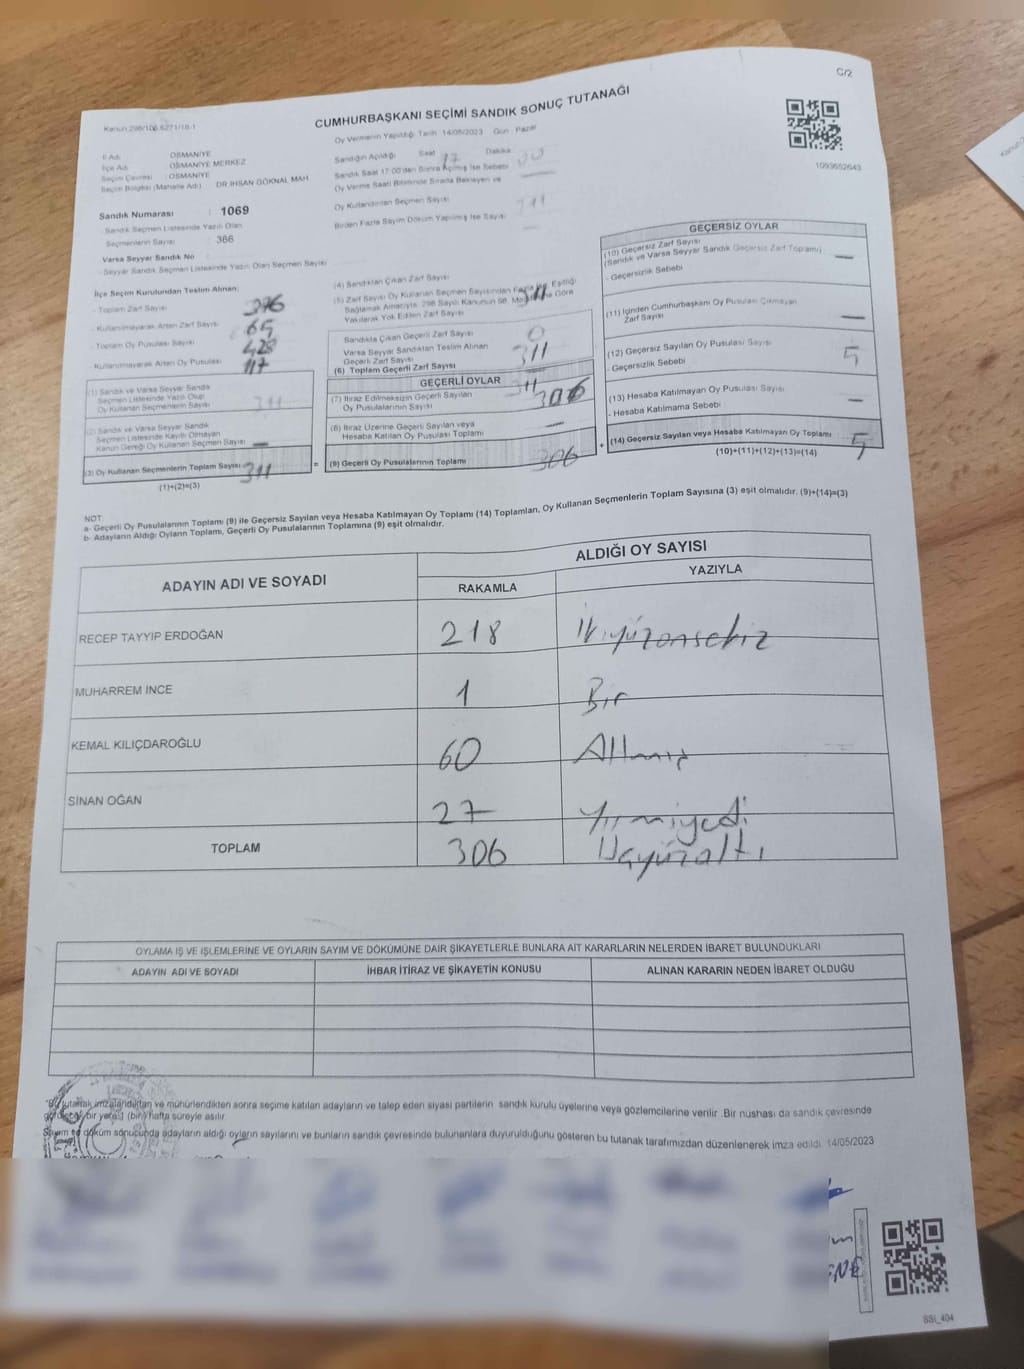 C/2
Kanun:298/105 6271/18-1
CUMHURBAŞKANI SEÇİMİ SANDIK SONUÇ TUTANAĞI
Oy Vermenin Yapıldığı Tarih 14/05/2023 Gün Pazar
1093652643
İl Adı : OSMANİYE
İlçe Adı : OSMANİYE MERKEZ
Seçim Çevresi : OSMANİYE
Seçim Bölgesi (Mahalle Adı) DR İHSAN GÖKNAL MAH
Sandık Numarası : 1069
- Sandık Seçmen Listesinde Yazılı Olan
Seçmenlerin Sayısı : 366
Varsa Seyyar Sandık No
- Seyyar Sandık Seçmen Listesinde Yazılı Olan Seçmen Sayısı
Sandığın Açıldığı Saat 17 Dakika 00
Sandık Saat 17:00'den Sonra Açılmış İse Sebebi
Oy Verme Saati Bitiminde Sırada Bekleyen ve
Oy Kullandırılan Seçmen Sayısı
Birden Fazla Sayım Döküm Yapılmış İse Sayısı
İlçe Seçim Kurulundan Teslim Alınan;
- Toplam Zarf Sayısı 376
- Kullanılmayarak Artan Zarf Sayısı 65
- Toplam Oy Pusulası Sayısı 428
- Kullanılmayarak Artan Oy Pusulası 117
(1) Sandık ve Varsa Seyyar Sandık
Seçmen Listesinde Yazılı Olup
Oy Kullanan Seçmenlerin Sayısı 311
(2) Sandık ve Varsa Seyyar Sandık
Seçmen Listesinde Kayıtlı Olmayan
Kanun Gereği Oy Kullanan Seçmen Sayısı —
(3) Oy Kullanan Seçmenlerin Toplam Sayısı 311
(1)+(2)=(3)
(4) Sandıktan Çıkan Zarf Sayısı 311
(5) Zarf Sayısı Oy Kullanan Seçmen Sayısından Fazla İse, Eşitliği
Sağlamak Amacıyla, 298 Sayılı Kanunun 98. Maddesine Göre
Yakılarak Yok Edilen Zarf Sayısı
Sandıkta Çıkan Geçerli Zarf Sayısı 0
Varsa Seyyar Sandıktan Teslim Alınan
Geçerli Zarf Sayısı 311
(6) Toplam Geçerli Zarf Sayısı 311
GEÇERLİ OYLAR
(7) İtiraz Edilmeksizin Geçerli Sayılan
Oy Pusulalarının Sayısı 306
(8) İtiraz Üzerine Geçerli Sayılan veya
Hesaba Katılan Oy Pusulası Toplamı —
= (9) Geçerli Oy Pusulalarının Toplamı 306
GEÇERSİZ OYLAR
(10) Geçersiz Zarf Sayısı
(Sandık ve Varsa Seyyar Sandık Geçersiz Zarf Toplamı) —
- Geçersizlik Sebebi
(11) İçinden Cumhurbaşkanı Oy Pusulası Çıkmayan
Zarf Sayısı —
(12) Geçersiz Sayılan Oy Pusulası Sayısı 5
- Geçersizlik Sebebi
(13) Hesaba Katılmayan Oy Pusulası Sayısı —
- Hesaba Katılmama Sebebi
+ (14) Geçersiz Sayılan veya Hesaba Katılmayan Oy Toplamı 5
(10)+(11)+(12)+(13)=(14)
NOT:
a- Geçerli Oy Pusulalarının Toplamı (9) ile Geçersiz Sayılan veya Hesaba Katılmayan Oy Toplamı (14) Toplamları, Oy Kullanan Seçmenlerin Toplam Sayısına (3) eşit olmalıdır. (9)+(14)=(3)
b- Adayların Aldığı Oyların Toplamı, Geçerli Oy Pusulalarının Toplamına (9) eşit olmalıdır.
ADAYIN ADI VE SOYADI
ALDIĞI OY SAYISI
RAKAMLA YAZIYLA
RECEP TAYYIP ERDOĞAN 218 İkiyüzonsekiz
MUHARREM İNCE 1 Bir
KEMAL KILIÇDAROĞLU 60 Altmış
SİNAN OĞAN 27 Yirmiyedi
TOPLAM 306 Üçyüzaltı
OYLAMA İŞ VE İŞLEMLERİNE VE OYLARIN SAYIM VE DÖKÜMÜNE DAİR ŞİKAYETLERLE BUNLARA AİT KARARLARIN NELERDEN İBARET BULUNDUKLARI
ADAYIN ADI VE SOYADI İHBAR İTİRAZ VE ŞİKAYETİN KONUSU ALINAN KARARIN NEDEN İBARET OLDUĞU
Bu tutanak imzalandıktan ve mühürlendikten sonra seçime katılan adayların ve talep eden siyasi partilerin sandık kurulu üyelerine veya gözlemcilerine verilir. Bir nüshası da sandık çevresinde
görülecek bir yere 1 (bir) hafta süreyle asılır.
Sayım ve döküm sonucunda adayların aldığı oyların sayılarını ve bunların sandık çevresinde bulunanlara duyurulduğunu gösteren bu tutanak tarafımızdan düzenlenerek imza edildi. 14/05/2023
SSI_404